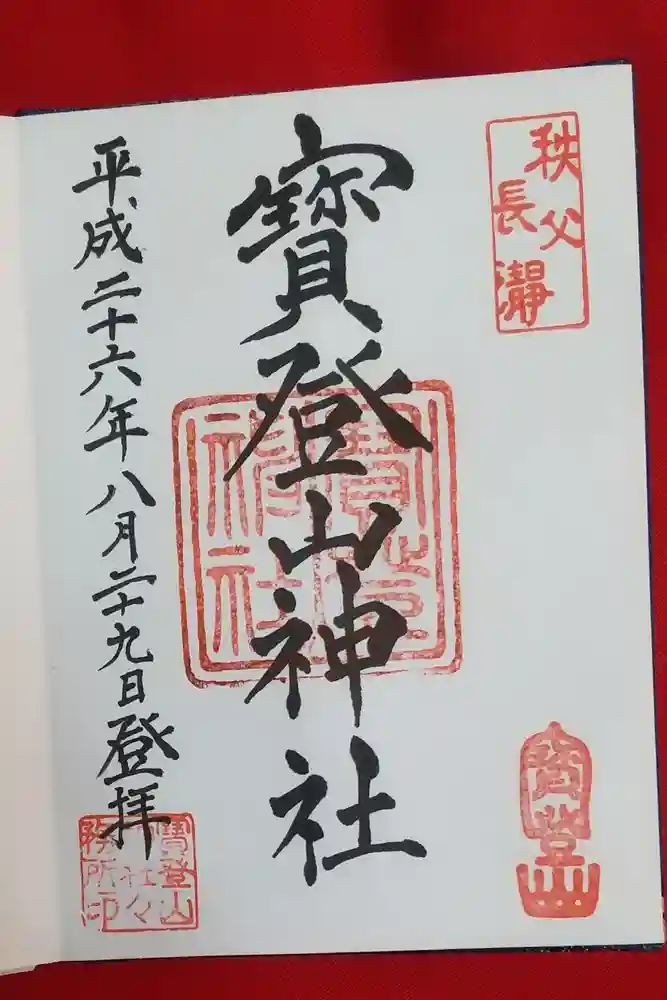 秩父
長瀞
寳登山神社
寳登山
平成二十六年八月二十九日登拝
寳登山
神社々
務所印